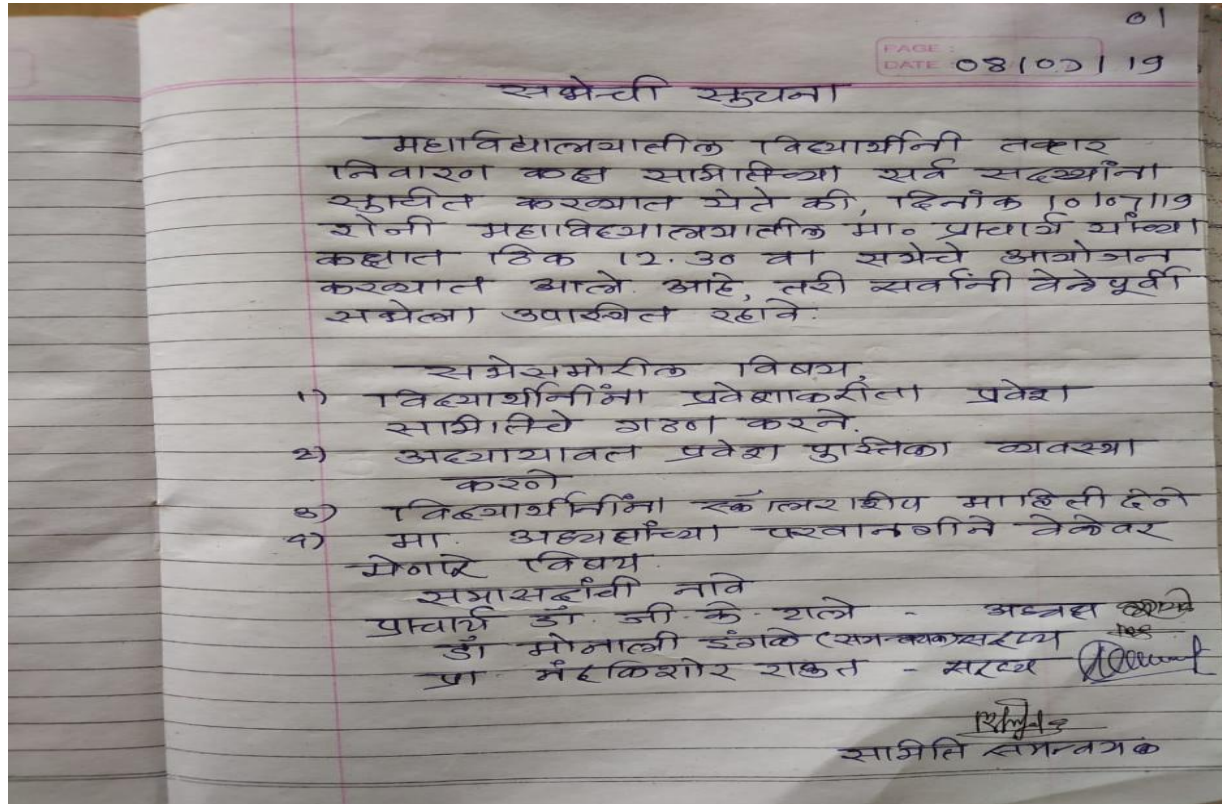 01
PAGE :
DATE 08/07/19
सभेची सुचना
महाविद्यालयातील विद्यार्थीनी तक्रार
निवारन कक्ष समितीच्या सर्व सदस्यांना
सुचित करण्यात येते की, दिनांक 10/07/19
रोजी महाविद्यालयातील मा० प्राचार्य यांच्या
कक्षात ठिक 12.30 वा सभेचे आयोजन
करण्यात आले आहे, तरी सर्वांनी वेळेपूर्वी
सभेला उपस्थित रहावे.
सभेसमोरील विषय,
1) विद्यार्थीनींना प्रवेशाकरीता प्रवेश
समितीचे गठण करने.
2) अद्यायावत प्रवेश पुस्तिका व्यवस्था
करणे
3) विद्यार्थीनींना स्कॉलरशीप माहिती देने
4) मा. अध्यक्षांच्या परवानगीने वेळेवर
येणारे विषय.
सभासदांची नावे
प्राचार्य डॉ. जी. के. राले - अध्यक्ष
डॉ मोनाली इंगळे (समन्वयक) सदस्य
प्रा. नंदकिशोर राऊत - सदस्य
समिति समन्वयक